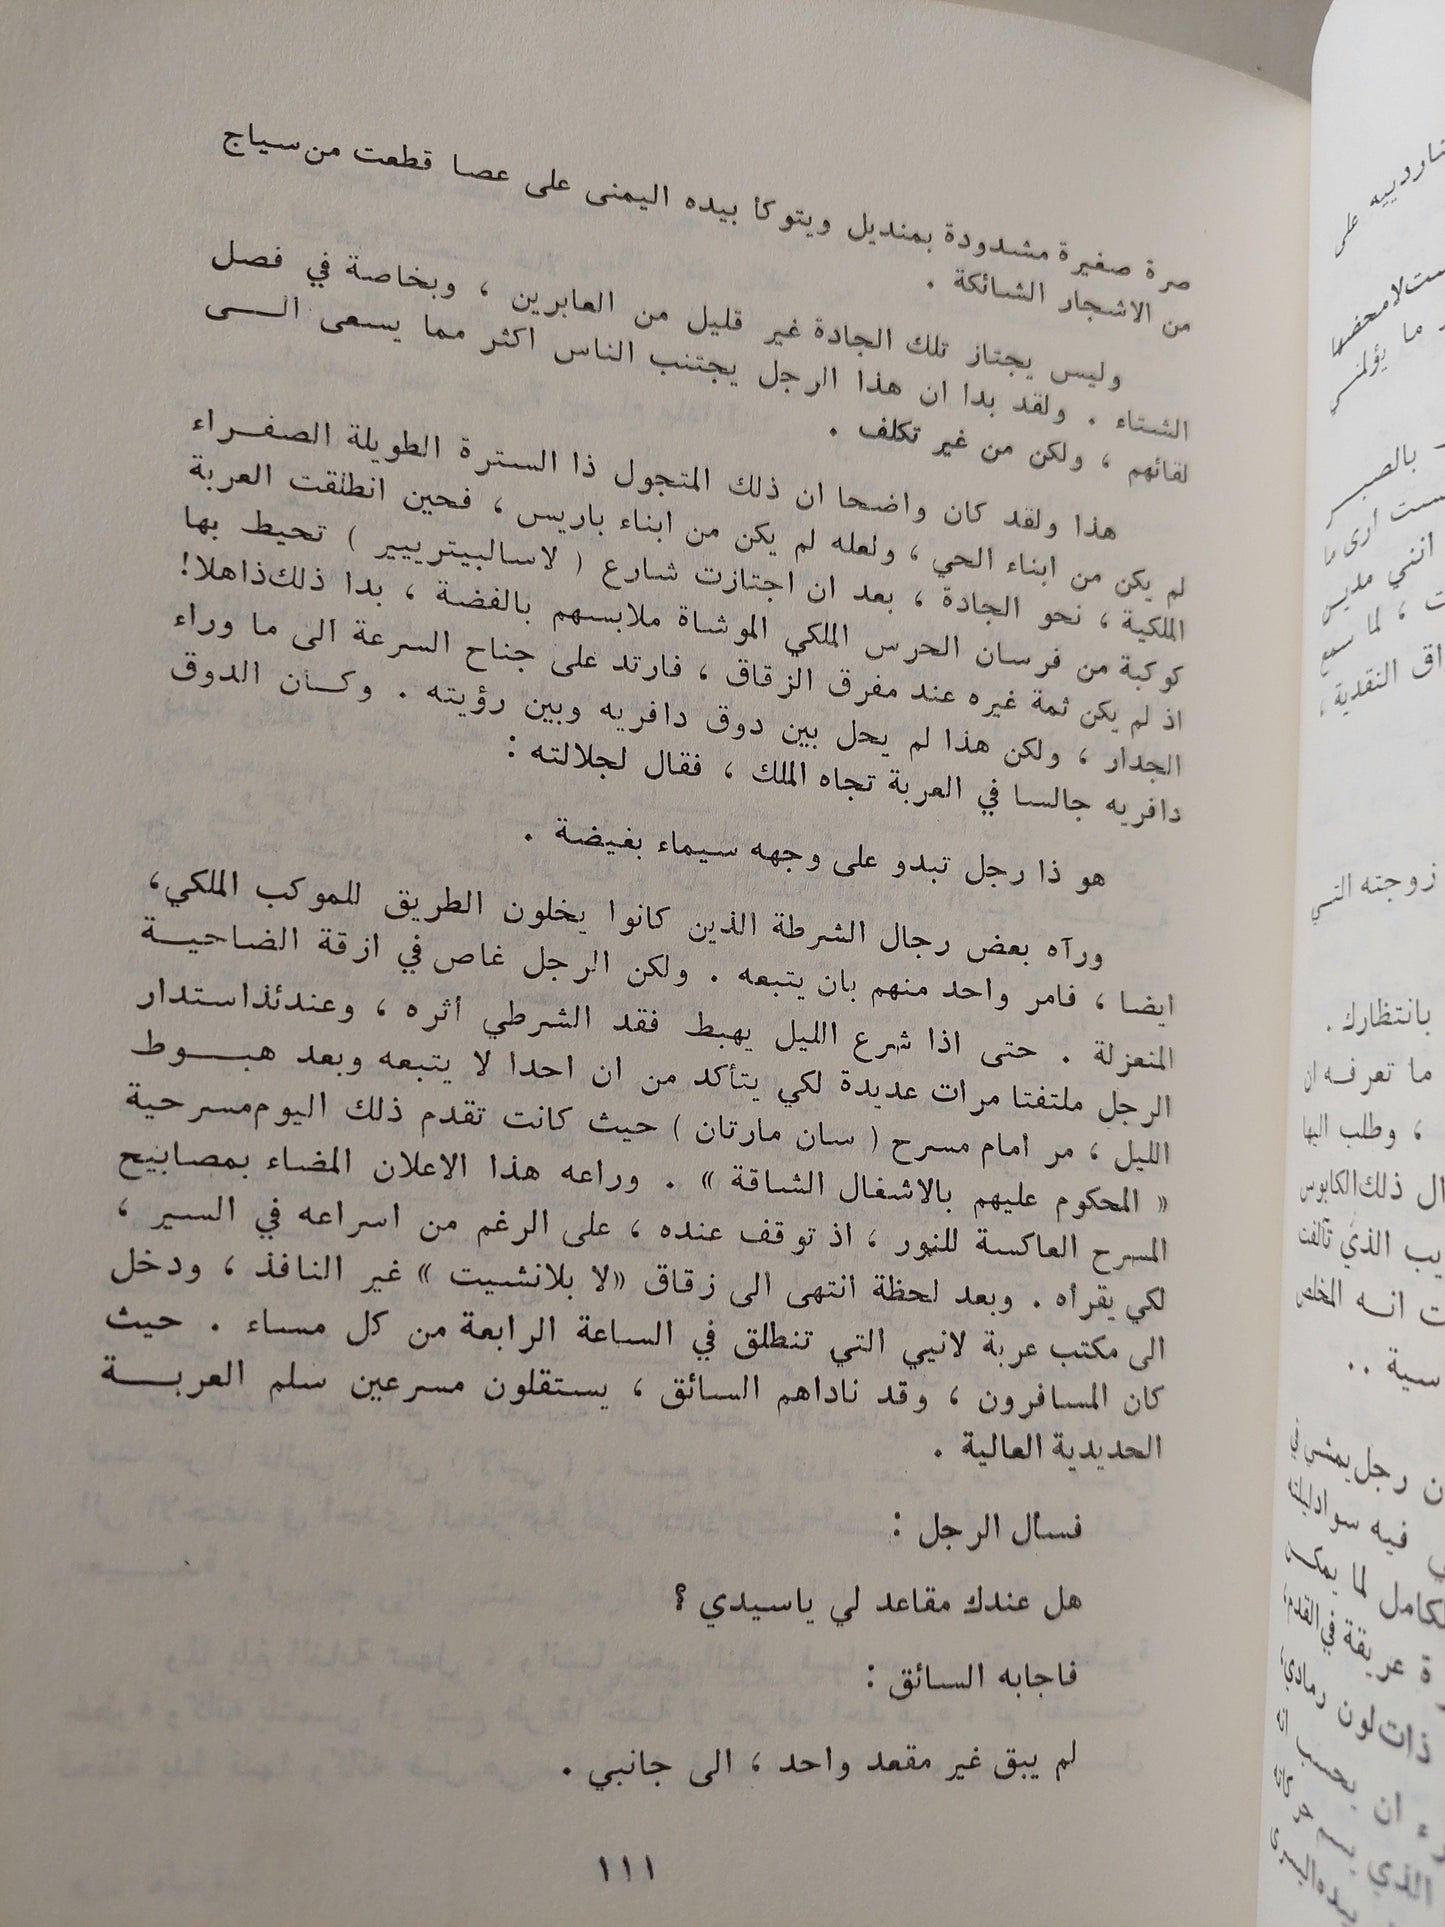 صرة صغيرة مشدودة بمنديل ويتوكأ بيده اليمنى على عصا قطعت من سياج
من الاشجار الشائكة .
وليس يجتاز تلك الجادة غير قليل من العابرين ، وبخاصة في فصل
الشتاء . ولقد بدا ان هذا الرجل يجتنب الناس اكثر مما يسعى الـــى
لقائهم ، ولكن من غير تكلف .
هذا ولقد كان واضحا ان ذلك المتجول ذا السترة الطويلة الصفــراء
لم يكن من ابناء الحي ، ولعله لم يكن من ابناء باريس ، فحين انطلقت العربة
الملكية ، نحو الجادة ، بعد ان اجتازت شارع ( لاسالبيتريير ) تحيط بها
كوكبة من فرسان الحرس الملكي الموشاة ملابسهم بالفضة ، بدا ذلك ذاهلا !
اذ لم يكن ثمة غيره عند مفرق الزقاق ، فارتد على جناح السرعة الى ما وراء
الجدار ، ولكن هذا لم يحل بين دوق دافريه وبين رؤيته . وكــان الدوق
دافريه جالسا في العربة تجاه الملك ، فقال لجلالته :
هو ذا رجل تبدو على وجهه سيماء بغيضة .
ورآه بعض رجال الشرطة الذين كانوا يخلون الطريق للموكب الملكي،
ايضا ، فامر واحد منهم بان يتبعه . ولكن الرجل غاص في ازقة الضاحيــة
المنعزلة . حتى اذا شرع الليل يهبط فقد الشرطي أثره ، وعندئذ استدار
الرجل ملتفتا مرات عديدة لكي يتأكد من ان احدا لا يتبعه وبعد هبـــوط
الليل ، مر امام مسرح ( سان مارتان ) حيث كانت تقدم ذلك اليوم مسرحية
« المحكوم عليهم بالاشغال الشاقة » . وراعه هذا الاعلان المضاء بمصابيح
المسرح العاكسة للنور ، اذ توقف عنده ، على الرغم من اسراعه في السير ،
لكي يقرأه . وبعد لحظة انتهى الى زقاق «لا بلانشيت » غير النافذ ، ودخل
الى مكتب عربة لانيي التي تنطلق في الساعة الرابعة من كل مساء . حيث
كان المسافرون ، وقد ناداهم السائق ، يستقلون مسرعين سلم العربـــة
الحديدية العالية .
فسأل الرجل :
هل عندك مقاعد لي ياسيدي ؟
فاجابه السائق :
لم يبق غير مقعد واحد ، الى جانبي .
١١١
على
ما يؤلمنـي
بالصبـر
ارى ما
انني مدين
، لما سمع
النقدية ،
زوجته التـي
بانتظارك .
ما تعرفـه ان
، وطلب اليها
ذلك الكابوس
الذي تألفت
انـه المخلص
رجل يمشي في
فيه سوادليلته
لما يمكـن
عريقة في القدم،
ذات لون رمادي،
ان يحسب انه